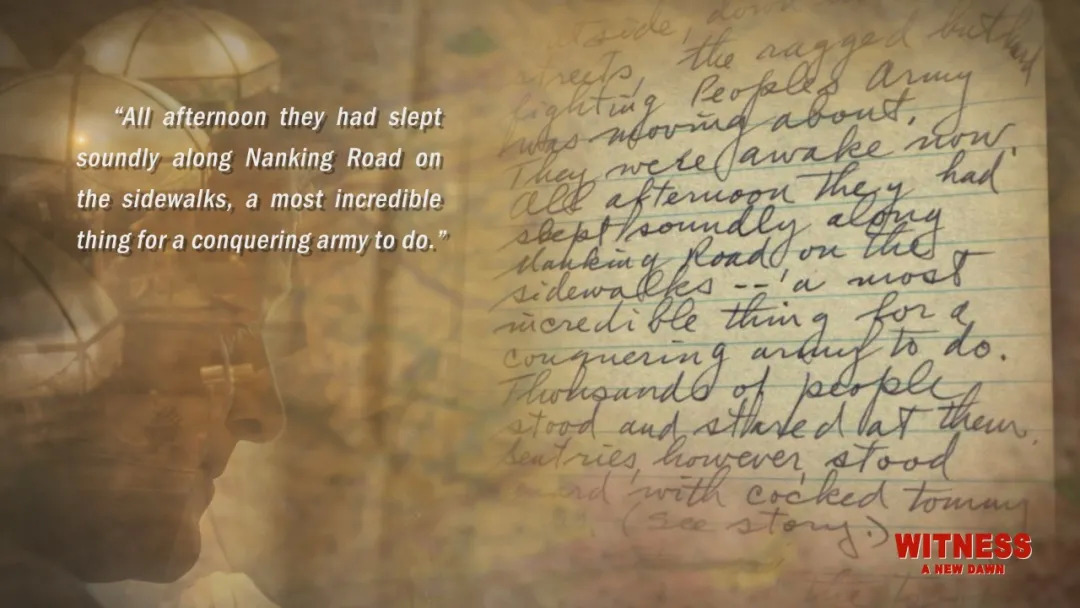 “All afternoon they had slept
soundly along Nanking Road on
the sidewalks, a most incredible
thing for a conquering army to do.”
outside, down
streets, the ragged but hard
fighting Peoples Army
was moving about.
They were awake now.
All afternoon they had
slept soundly along
Nanking Road on the
sidewalks -- a most
incredible thing for a
conquering army to do.
Thousands of people
stood and stared at them.
Sentries, however, stood
with cocked tommy
(See story.)
WITNESS
A NEW DAWN